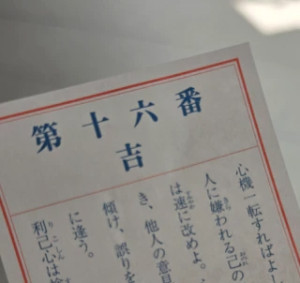 第十六番
吉
心機一転すればよし
人に嫌われる己の
は速に改めよ。
き、他人の意見
傾け、誤りを
に逢う。
利己心は